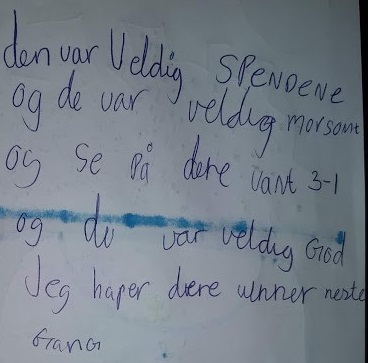 den var Veldig SPENDENE
og de var veldig morsomt
og se på dere vant 3-1
og du var veldig God
Jeg håper dere vinner neste
GANG